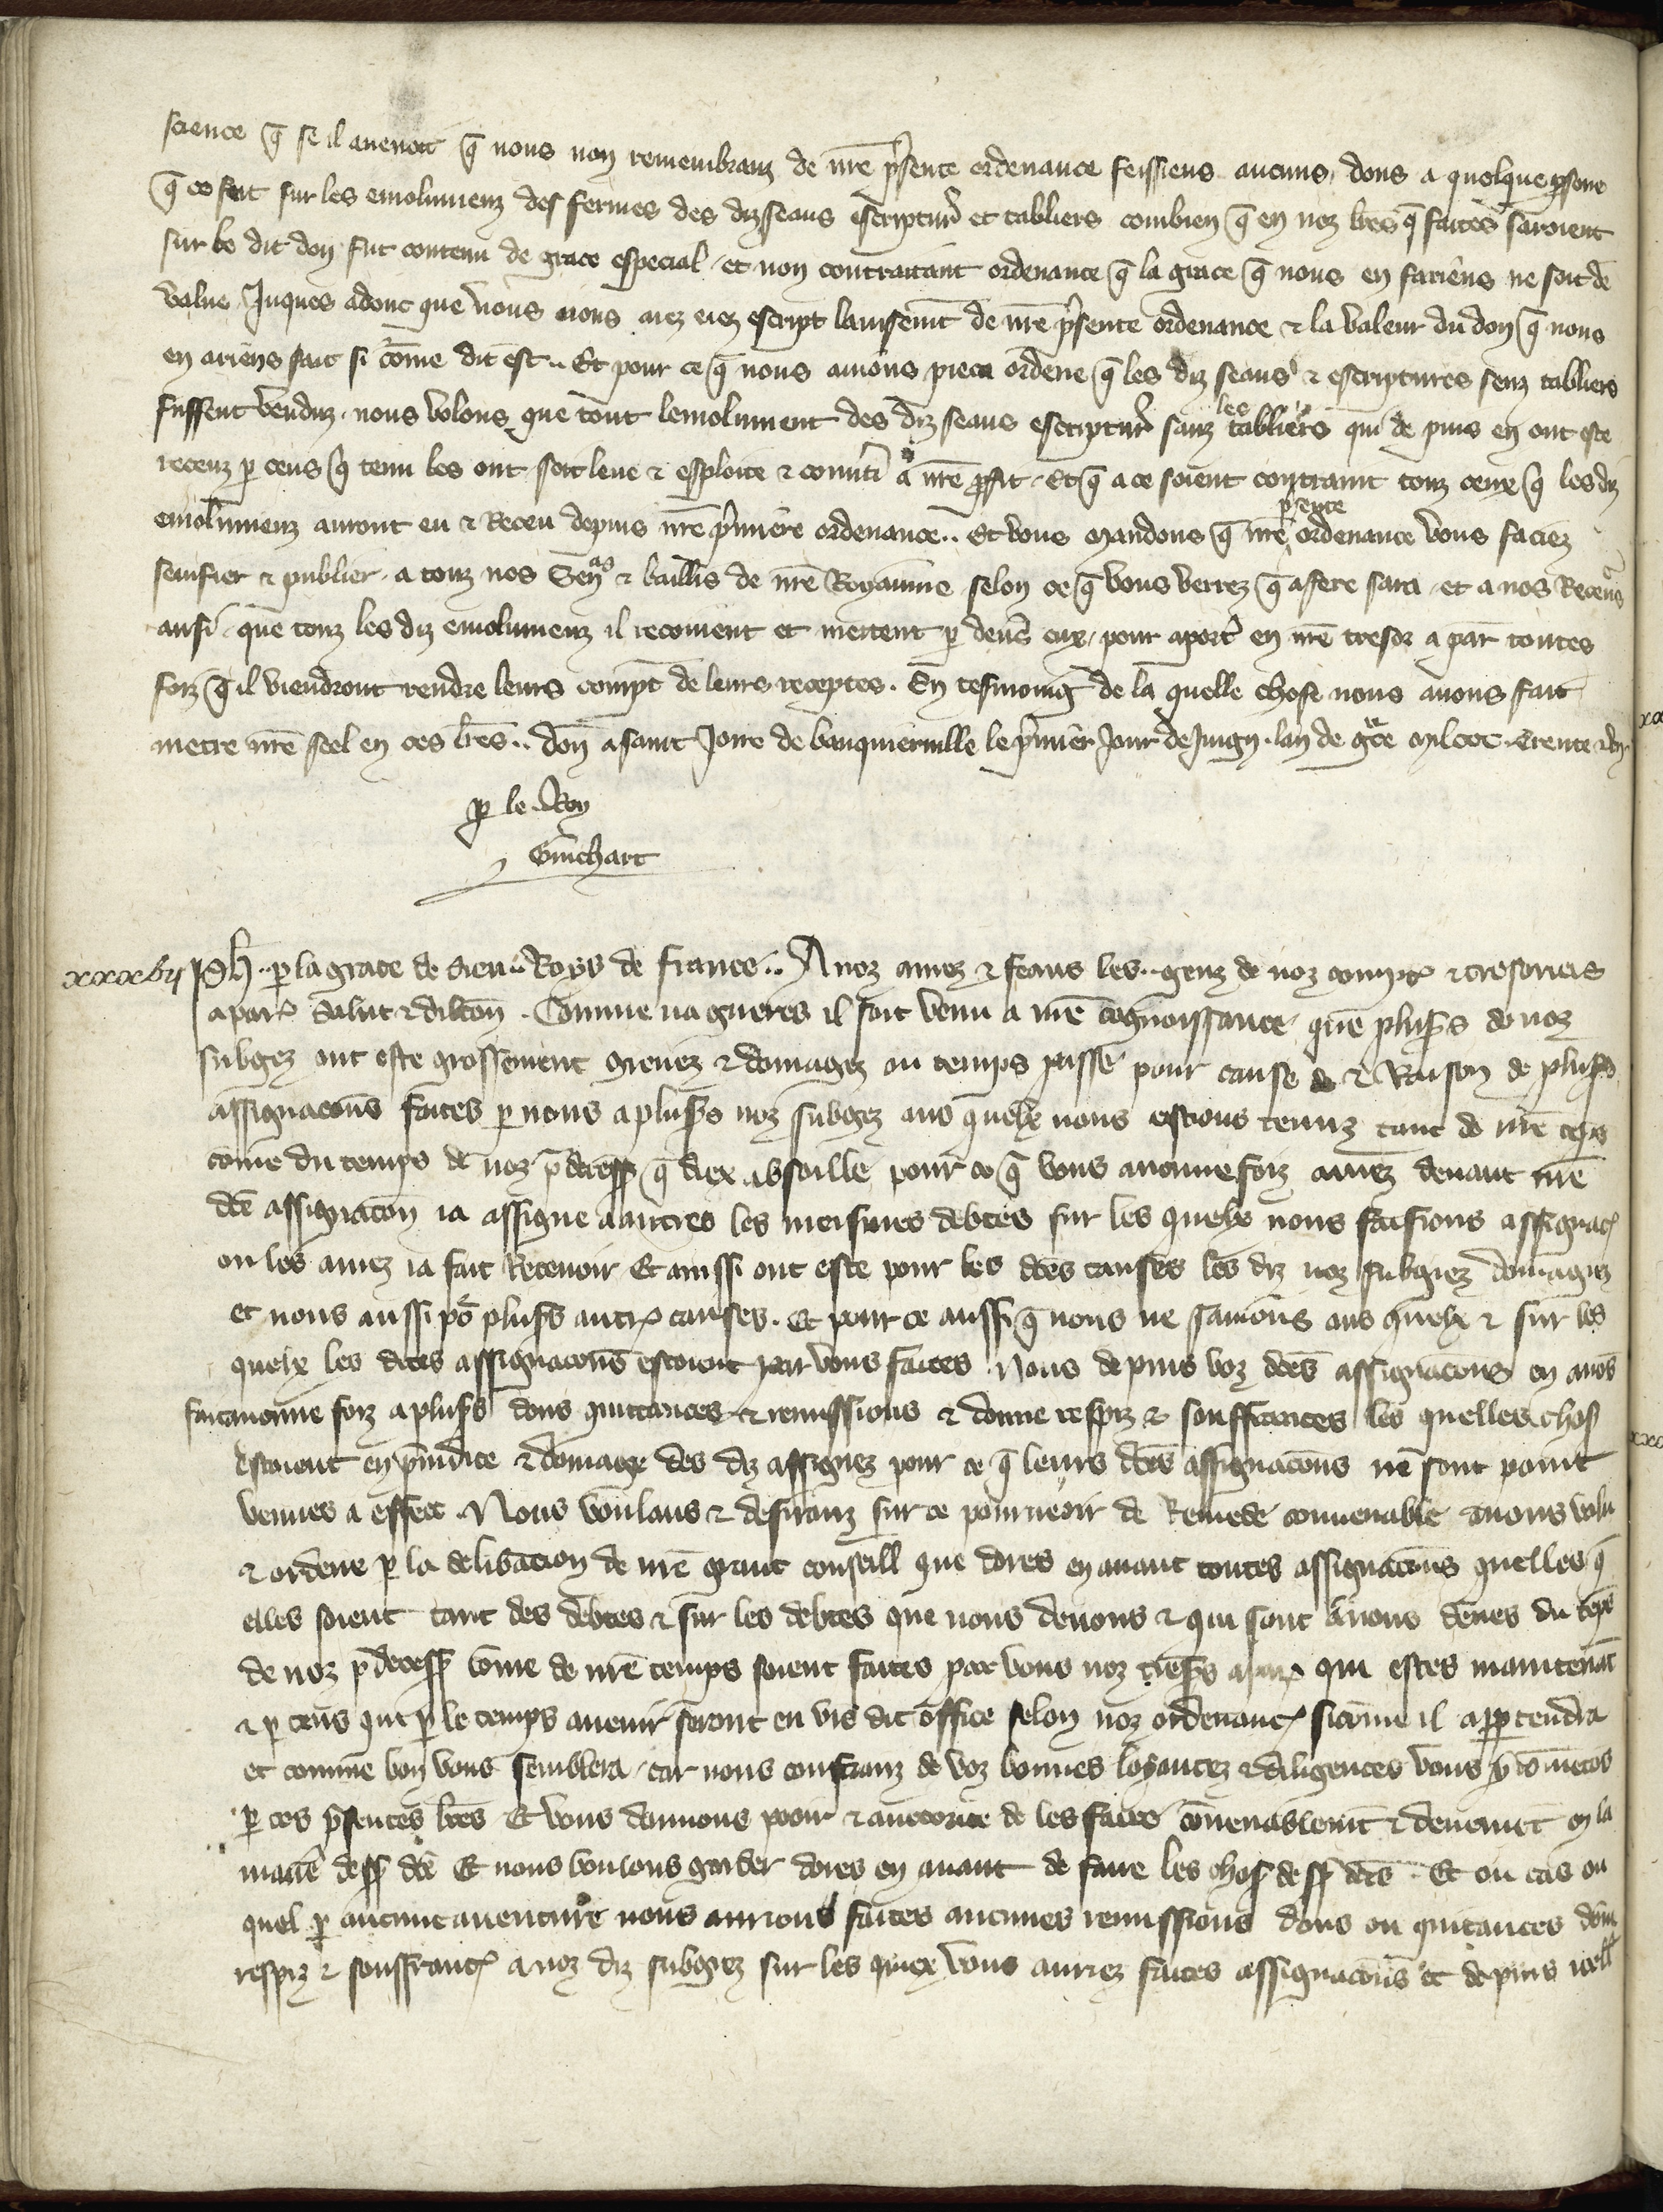 science q̄ se il avenoit q̄ nous non remembranz de nrē p̄sente ordenance feissiens aucuns dons a quelque p̱sone
q̄ ce soit sur les emolumenz des fermes des diz seaus escriptur̃ et tabliers combien q̄ en noz lrēs q̄ faites saroient
sur le dit don fut contenu de grace especial et non contraitant ordenance q̄ la grace q̄ nous en fariens ne soit de
value Juques adonc que vous nous aiez escript lavisemt̄ de nrē p̄sente ordenance & la valeur du don q̄ nous
en ariens fait si com̄e dit est .. Et pour ce q̄ nous avions pieca ordene q̄ les diz seaus & escriptures senz tabliers
fussent venduz . nous volons que tout lemolument des diz seaus escriptur̃ sanz les tabliers qui de puis en ont este
receuz p̱ ceus q̄ tenu les ont soit leve & esploite & conv̄ti a nrē p̱fit . Et q̄ a ce soient contraint touz ceux q̄ les diz
emolumenz auront eu & Receu depuis nrē p̄miere ordenance .. Et vous mandons q̄ nrē p̄sente ordenance vous faciez
senifier & publier . a touz nos Sen̄aus & baillis de nrē Royaume selon ce q̄ vous verrez q̄ a fere sara . et a nos Receu̾s
ausi . que touz les diz emolumenz il recoivent et mettent p̱ devs̄ eux / pour aport̾ en nrē tresor a par̄ toutes
foiz q̄ il viendront rendre leurs compt̄ de leurs receptes . En tesmoing de la quelle chose nous avons fait
metre nrē seel en ces lrēs .. don̄ a saint Joire de bauquierville le p̄mier Jour de Juign . lan de gr̄ce mil ccc . trente &
p̱ le Roy
Guichart
xxxvij Ph̄ .. p̱ la grace de dieu .. Roys de france .. A noz amez & feaus les .. genz de noz compt̾ & tresoriers
a par̾ Salut & dilcōn . Comme na gueres il soit venu a nrē cognoissance que plus̾s de noz
subgez ont este grossement grevez & domagez ou temps passe pour cause & Raison de plus̾s
assignacōns faites p̱ nous a plus̾s noz subgez aus quelx nous estions tenuz tant de nrē tēps
com̄e du temps de noz p̄decess̾ q̄ diex absoille pour ce q̄ vous aucune foiz aviez devant nrē
dcē assignacōn ia assigne a autres les meismes debtes sur les quelx nous faisions assignac̾
ou les aviez ia fait Recevoir Et aussi ont este pour les dcēs causes les diz noz subgiez domagiez
et nous aussi po̾ plus̾s autr̾ causes . Et pour ce aussi q̄ nous ne savions aus quelx & sur les
quelx les dites assignacōns estoient par vous faites Nous de puis voz dcēs assignacōns en avōs
fait aucune foiz a plus̾s dons quittances & remissions & donne respiz & souffrances les quelles chos̾
estoient en p̄iudice & domage des diz assignez pour ce q̄ leurs dcēs assignacōns ne sont point
venues a effect . Nous voulans & desiranz sur ce pourveoir de Remede convenable avons volu
& ordene p̱ la delib̾acion de nrē grant conseill que dores en avant toutes assignacōns quelles q̄
elles soient tant des debtes & sur les debtes que nous devons & qui sont a nous deues du tēps
de noz p̄decess̾ com̄e de nrē temps soient faites par vous noz tres̾s a par̾ qui estes maintenāt
& p̱ ceus qui p̱ le temps avenir seront en vr̄e dit office selon noz ordenanc̾ si com̄e il app̱tendra
et comme bon vous semblera . car nous confianz de voz bonnes loyautez & diligences vous p̄ com̄etōs
p̱ ces p̄sentes lrēs Et vous donnons pooir & auctorite de les faire cōvenablemt̄ & deuemet̄ en la
maniē̾ dess̾ dcē Et nous voulons garder dores en avant de faire les chos̾ dess̾ dcēs . Et ou cas ou
quel p̱ aucune aventure nous aurions faites aucunes remissions dons ou quitances dōne
respiz & souffranc̾ a noz diz subgez sur les quex vous auriez faites assignacōns et de puis icell̾